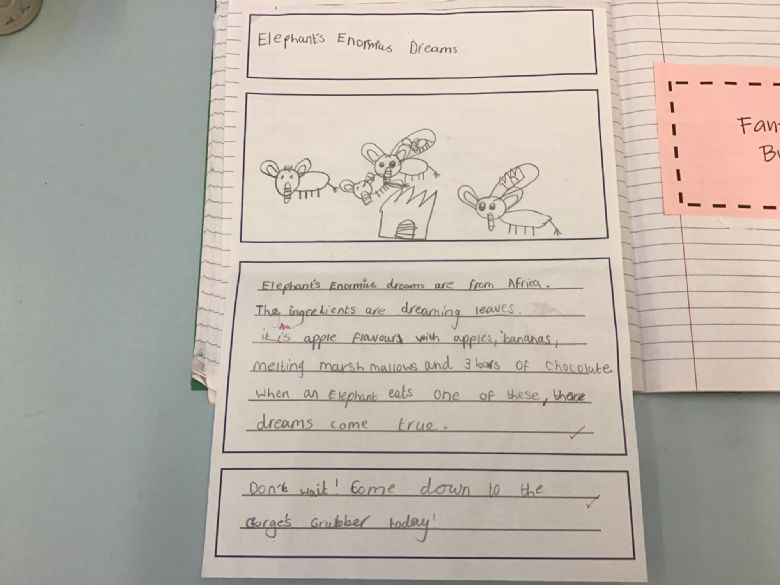 Elephant's Enormus Dreams
Elephant's Enormus dreams are from Africa.
The ingredients are dreaming leaves.
it is apple flavours with apples, bananas,
melting marshmallows and 3 bars of chocolate.
When an Elephant eats one of these, there
dreams come true.
Don't wait! Come down to the
Gorge's Grubber today!
Fan
B